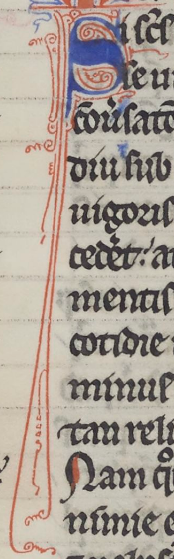 Si scs
seu
cōusatō
diu sub
uigoris
cedet: a
mentis
cotidie
minus
tan reli
Nam q
nimie e